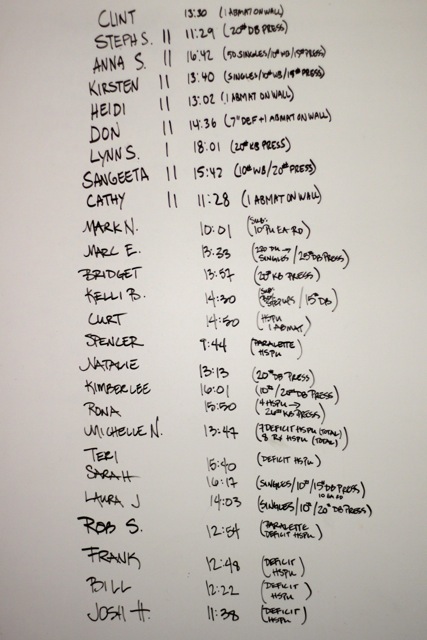 CLINT 13:30 (1 ABMAT ON WALL)
STEPH S. II 11:29 (20# DB PRESS)
ANNA S. II 16:42 (50 SINGLES/10# WB/15# PRESS)
KIRSTEN II 13:40 (SINGLES/10# WB/15# PRESS)
HEIDI II 13:02 (1 ABMAT ON WALL)
DON II 14:36 (7" DEF + 1 ABMAT ON WALL)
LYNN S. I 18:01 (20# KB PRESS)
SANGEETA II 15:42 (10# WB/20# PRESS)
CATHY II 11:28 (1 ABMAT ON WALL)
MARK N. 10:01 (SUB: 10 PU EA. RD)
MARC E. 13:33 (220 DU → SINGLES/25# DB PRESS)
BRIDGET 13:57 (20# KB PRESS)
KELLI B. 14:30 (SUB: STEPUPS/15# DB)
CURT 14:50 (HSPU 1 ABMAT)
SPENCER 9:44 (PARALETTE HSPU)
NATALIE 13:13 (20# DB PRESS)
KIMBERLEE 16:01 (10#/20# DB PRESS)
RONA 15:50 (4 HSPU → 26# KB PRESS)
MICHELLE N. 13:47 (7 DEFICIT HSPU (TOTAL) 8 RX HSPU (TOTAL))
TERI 15:40 (DEFICIT HSPU)
SARAH 16:17 (SINGLES/10#/15# DB PRESS)
LAURA J 14:03 (SINGLES/10#/20# DB PRESS)
ROB S. 12:54 (PARALETTE DEFICIT HSPU)
FRANK 12:48 (DEFICIT HSPU)
BILL 12:22 (DEFICIT HSPU)
JOSH H. 11:38 (DEFICIT HSPU)